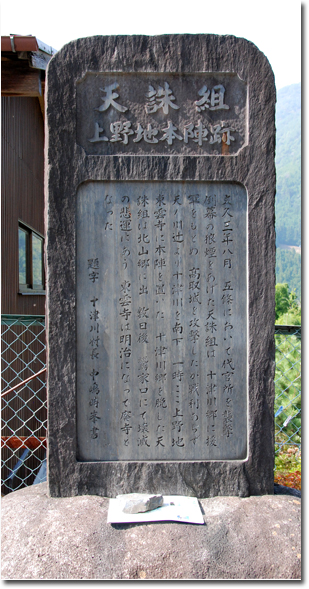 天誅組
上野地本陣跡
文久三年八月 五條において代官所を襲撃
倒幕の狼煙をあげた天誅組は 十津川郷に援
軍をもとめ 高取城を攻撃したが利あらず
天ノ川辻より十津川を南下 一時ここ上野地
東雲寺に本陣を置いた 十津川郷を脱した天
誅組は北山郷に出 数日後 鷲家口にて壊滅
の悲運にあう 東雲寺は明治になって廃寺と
なった
題字 十津川村長 書